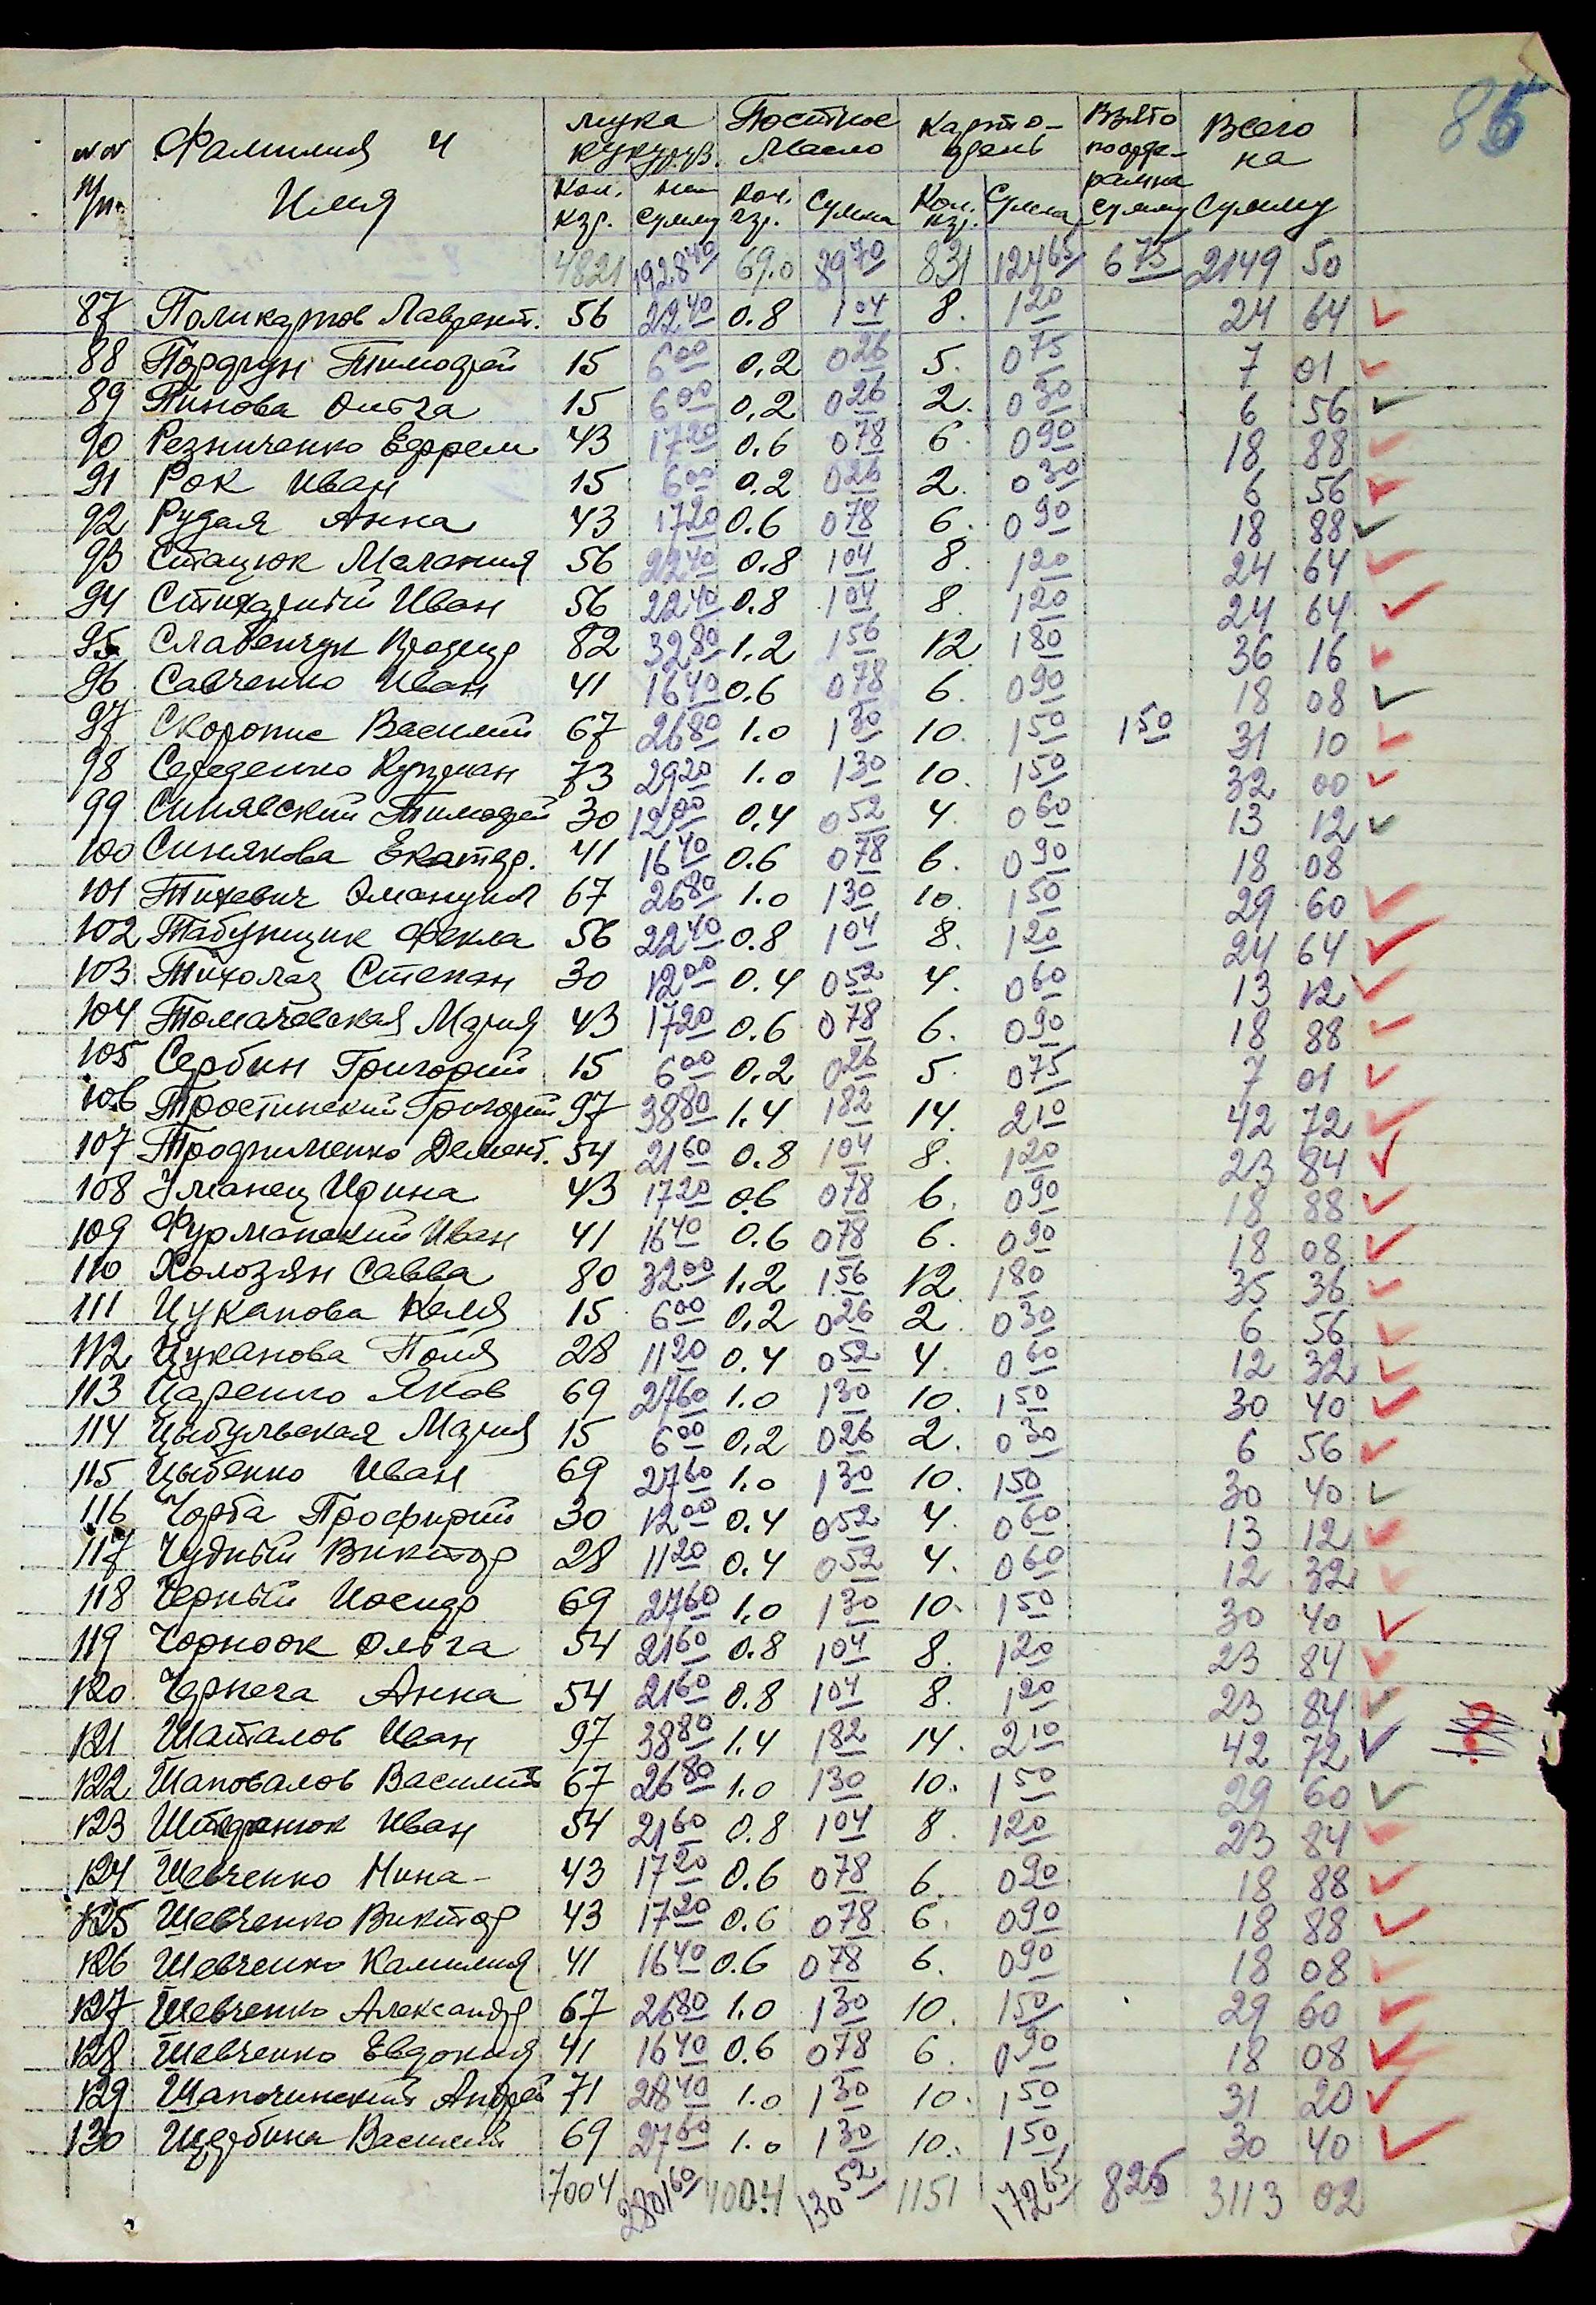 86
№№ п/п. Фамилия и Имя мука кукуруз. Постное Масло Карто- фель Взято по орде- рам на сумму Всего на Сумму
Кол. кгр. на сумму Кол. кгр. Сумма Кол. кгр. Сумма
4821 1928 40 69.0 89 70 831 124 65 6 75 2149 50
87 Поликарпов Лаврент. 56 22 40 0.8 1 04 8. 1 20 24 64
88 Тимофей 15 6 00 0.2 0 26 5. 0 75 7 01
89 Пинова Ольга 15 6 00 0.2 0 26 2. 0 30 6 56
90 Резниченко Ефрем 43 17 20 0.6 0 78 6. 0 90 18 88
91 Рок Иван 15 6 00 0.2 0 26 2. 0 30 6 56
92 Рудая Анна 43 17 20 0.6 0 78 6. 0 90 18 88
93 Стацюк Мелания 56 22 40 0.8 1 04 8. 1 20 24 64
94 Иван 56 22 40 0.8 1 04 8. 1 20 24 64
95 Славенчук 82 32 80 1.2 1 56 12 1 80 36 16
96 Савченко Иван 41 16 40 0.6 0 78 6. 0 90 18 08
97 Скоропис Василий 67 26 80 1.0 1 30 10. 1 50 1 50 31 10
98 Середенко 73 29 20 1.0 1 30 10. 1 50 32 00
99 Синявский Тимофей 30 12 00 0.4 0 52 4. 0 60 13 12
100 Синякова Екатер. 41 16 40 0.6 0 78 6. 0 90 18 08
101 Тихевич Эмануил 67 26 80 1.0 1 30 10. 1 50 29 60
102 Табунщик Фекла 56 22 40 0.8 1 04 8. 1 20 24 64
103 Тихолаз Степан 30 12 00 0.4 0 52 4. 0 60 13 12
104 Томачевская Мария 43 17 20 0.6 0 78 6. 0 90 18 88
105 Сербин Григорий 15 6 00 0.2 0 26 5. 0 75 7 01
106 Тростинский Григорий 97 38 80 1.4 1 82 14. 2 10 42 72
107 Трофименко Демент. 54 21 60 0.8 1 04 8. 1 20 23 84
108 Уманец Ирина 43 17 20 0.6 0 78 6. 0 90 18 88
109 Фурманский Иван 41 16 40 0.6 0 78 6. 0 90 18 08
110 Холозян Савва 80 32 00 1.2 1 56 12 1 80 35 36
111 Цуканова Келя 15 6 00 0.2 0 26 2. 0 30 6 56
112 Цуканова Поля 28 11 20 0.4 0 52 4. 0 60 12 32
113 Царенко Яков 69 27 60 1.0 1 30 10. 1 50 30 40
114 Цыбульская Мария 15 6 00 0.2 0 26 2. 0 30 6 56
115 Цыбенко Иван 69 27 60 1.0 1 30 10. 1 50 30 40
116 Чорба Профирий 30 12 00 0.4 0 52 4. 0 60 13 12
117 Чудный Виктор 28 11 20 0.4 0 52 4. 0 60 12 32
118 Черный Иосиф 69 27 60 1.0 1 30 10. 1 50 30 40
119 Чорноок Ольга 54 21 60 0.8 1 04 8. 1 20 23 84
120 Чернега Анна 54 21 60 0.8 1 04 8. 1 20 23 84
121 Шаталов Иван 97 38 80 1.4 1 82 14. 2 10 42 72 ?
122 Шаповалов Василий 67 26 80 1.0 1 30 10. 1 50 29 60
123 Иван 54 21 60 0.8 1 04 8. 1 20 23 84
124 Шевченко Нина 43 17 20 0.6 0 78 6. 0 90 18 88
125 Шевченко Виктор 43 17 20 0.6 0 78 6. 0 90 18 88
126 Шевченко Камилия 41 16 40 0.6 0 78 6. 0 90 18 08
127 Шевченко Александр 67 26 80 1.0 1 30 10. 1 50 29 60
128 Шевченко Евдокия 41 16 40 0.6 0 78 6. 0 90 18 08
129 Шапочинский Андрей 71 28 40 1.0 1 30 10. 1 50 31 20
130 Щербина Василий 69 27 60 1.0 1 30 10. 1 50 30 40
7004 2801 60 100.4 130 52 1151 172 65 8 25 3113 02